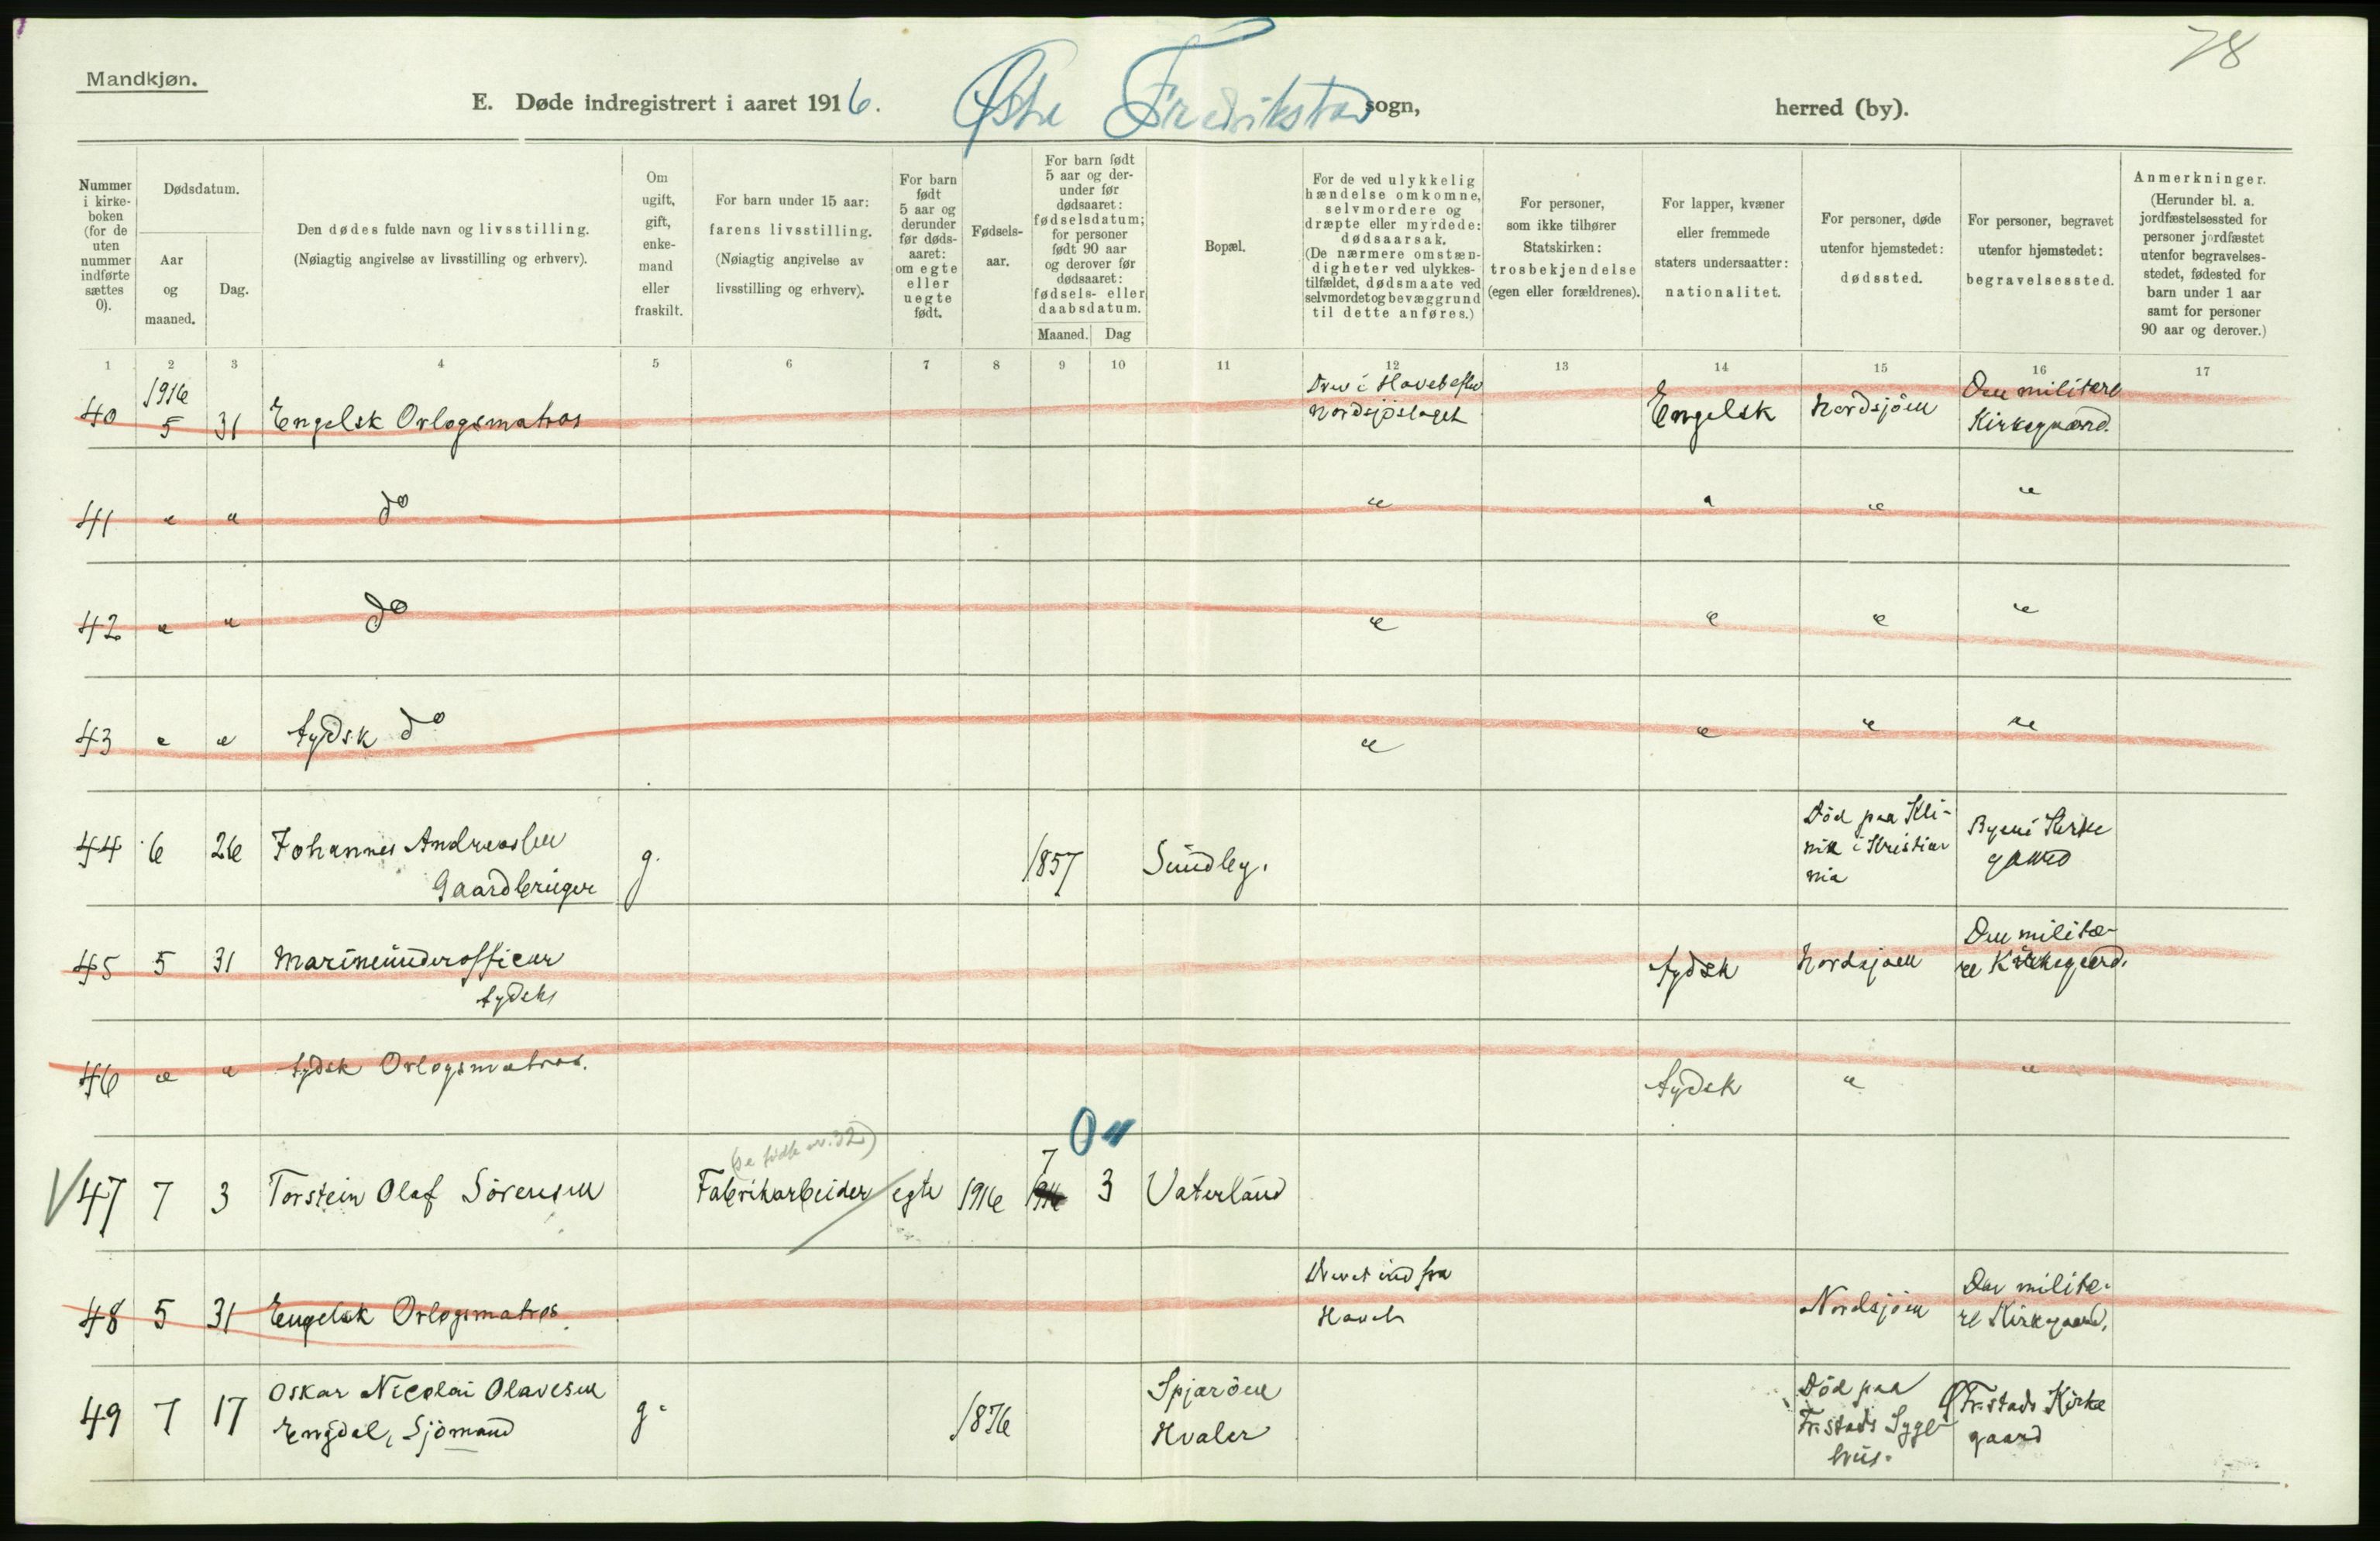 78
Mandkjøn.
E. Døde indregistrert i aaret 1916. Østre Fredrikstad sogn, herred (by).
Nummer i kirkeboken (for de uten nummer indførte sættes 0).
Dødsdatum.
Aar og maaned.
Dag.
Den dødes fulde navn og livsstilling.
(Nøiagtig angivelse av livsstilling og erhverv).
Om ugift, gift, enkemand eller fraskilt.
For barn under 15 aar: farens livsstilling.
(Nøiagtig angivelse av livsstilling og erhverv).
For barn født 5 aar og derunder før dødsaaret: om egte eller uegte født.
Fødselsaar.
For barn født 5 aar og derunder før dødsaaret: fødselsdatum; for personer født 90 aar og derover før dødsaaret: fødsels- eller daabsdatum.
Maaned. Dag
Bopæl.
For de ved ulykkelig hændelse omkomne, selvmordere og dræpte eller myrdede: dødsaarsak. (De nærmere omstændigheter ved ulykkestilfældet, dødsmaate ved selvmordet og bevæggrund til dette anføres.)
For personer, som ikke tilhører Statskirken: trosbekjendelse (egen eller forældrenes).
For lapper, kvæner eller fremmede staters undersaatter: nationalitet.
For personer, døde utenfor hjemstedet: dødssted.
For personer, begravet utenfor hjemstedet: begravelsessted.
Anmerkninger. (Herunder bl. a. jordfæstelsessted for personer jordfæstet utenfor begravelsesstedet, fødested for barn under 1 aar samt for personer 90 aar og derover.)
1 2 3 4 5 6 7 8 9 10 11 12 13 14 15 16 17
1916 i Havet efter Den militære
40 5 31 Engelsk Orlogsmatros Nordsjöslaget Engelsk Nordsjöen Kirkegaard.
41 " " do " " " "
42 " " do " " " "
43 " " tydsk do " " " "
44 6 26 Johannes Andreassen g. 1857 Sundby. Död paa Kli- Byens Kirke
Gaardbruger nik i Kristia- gaard
nia
45 5 31 Marineunderofficer tydsk Nordsjöen Den militæ-
tydsk re Kirkegaard.
46 " " tydsk Orlogsmatros. tydsk " "
(se födte nr. 32)
47 7 3 Torstein Olaf Sörensen Fabrikarbeider egte 1916 7 3 Vaterland
48 5 31 Engelsk Orlogsmatros. Drevet ind fra Nordsjöen Den militæ-
Havet re Kirkegaard.
49 7 17 Oskar Nicolai Olavesen g. 1876 Spjæröen Död paa Ø Fr.stads Kirke
Engdal, Sjömand Hvaler Fr.stads Syge- gaard
hus.